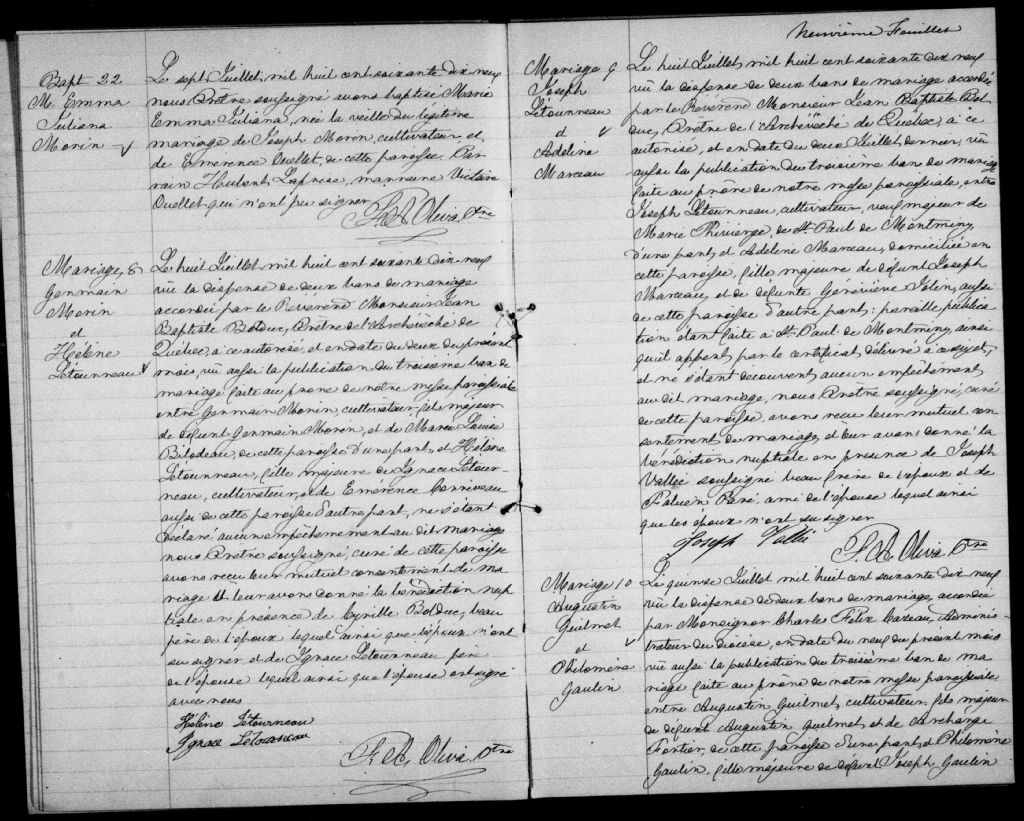 Bapt 22
M. Emma
Juliana
Morin
Le sept Juillet, mil huit cent soixante dix neuf
nous Prêtre soussigné avons baptisé Marie
Emma Juliana, née la veille du légitime
mariage de Joseph Morin, cultivateur, et
de Emérence Ouellet, de cette paroisse. Par-
rain Hubert Laprise, marraine Victoire
Ouellet qui n'ont pu signer
F. A. Oliva. Ptre
Mariage, 8
Germain
Morin
et
Hélène
Létourneau
Le huit Juillet, mil huit cent soixante dix neuf
vû la dispense de deux bans de mariage
accordée par le Révérend Monsieur Jean
Baptiste Bolduc, Prêtre de l'Archevêché de
Québec, à ce autorisé, et en date du deux du présent
mois, vû aussi la publication du troisième ban de
mariage faite au prône de notre messe paroissiale
entre Germain Morin, cultivateur, fils majeur
de défunt Germain Morin, et de Marie Louise
Bilodeau, de cette paroisse d'une part, et Hélène
Létourneau, fille majeure de Ignace Létour-
neau, cultivateur, et de Emérence Corriveau
aussi de cette paroisse d'autre part, ne s'étant
déclaré aucun empêchement au dit mariage
nous Prêtre soussigné, curé de cette paroisse
avons reçu leur mutuel consentement de ma
riage et leur avons donné la bénédiction nup
tiale en présence de Cyrille Bolduc, beau
père de l'époux lequel ainsi que l'époux n'ont
su signer et de Ignace Létourneau père
de l'épouse lequel ainsi que l'épouse ont signé
avec nous
Hélène Létourneau
Ignace Létourneau
F. A. Oliva. Ptre
Neuvième Feuillet
Mariage 9
Joseph
Létourneau
et
Adeline
Marceau
Le huit Juillet, mil huit cent soixante dix neuf
vû la dispense de deux bans de mariage accordée
par le Révérend Monsieur Jean Baptiste Bol
duc, Prêtre de l'Archevêché de Québec, à ce
autorisé, et en date du deux Juillet dernier, vû
aussi la publication du troisième ban de mariage
faite au prône de notre messe paroissiale, entre
Joseph Létourneau, cultivateur, veuf majeur de
Marie de St. Paul de Montminy,
d'une part, et Adeline Marceau, domiciliée en
cette paroisse, fille majeure de défunt Joseph
Marceau, et de défunte Geneviève aussi
de cette paroisse d'autre part; pareille publica
tion étant faite à St. Paul de Montminy, ainsi
qu'il appert par le certificat délivré à ce sujet,
et ne s'étant découvert aucun empêchement
au dit mariage, nous Prêtre soussigné, curé
de cette paroisse, avons reçu leur mutuel con
sentement de mariage, et leur avons donné la
bénédiction nuptiale en présence de Joseph
Vallée soussigné beau frère de l'époux et de
Paré, ami de l'épouse lequel ainsi
que les époux n'ont su signer
Joseph Vallée
F. A. Oliva Ptre
Mariage 10
Augustin
Guilmet
et
Philomène
Gaulin
Le quinze Juillet mil huit cent soixante dix neuf
vû la dispense de deux bans de mariage, accordée
par Monsignor Charles Félix Cazeau, Adminis-
trateur du diocèse, en date du neuf du présent mois
vû aussi la publication du troisième ban de ma
riage faite au prône de notre messe paroissiale
entre Augustin Guilmet, cultivateur, fils majeur
de défunt Augustin Guilmet, et de Archange
Fortier, de cette paroisse d'une part, et Philomène
Gaulin, fille majeure de défunt Joseph Gaulin